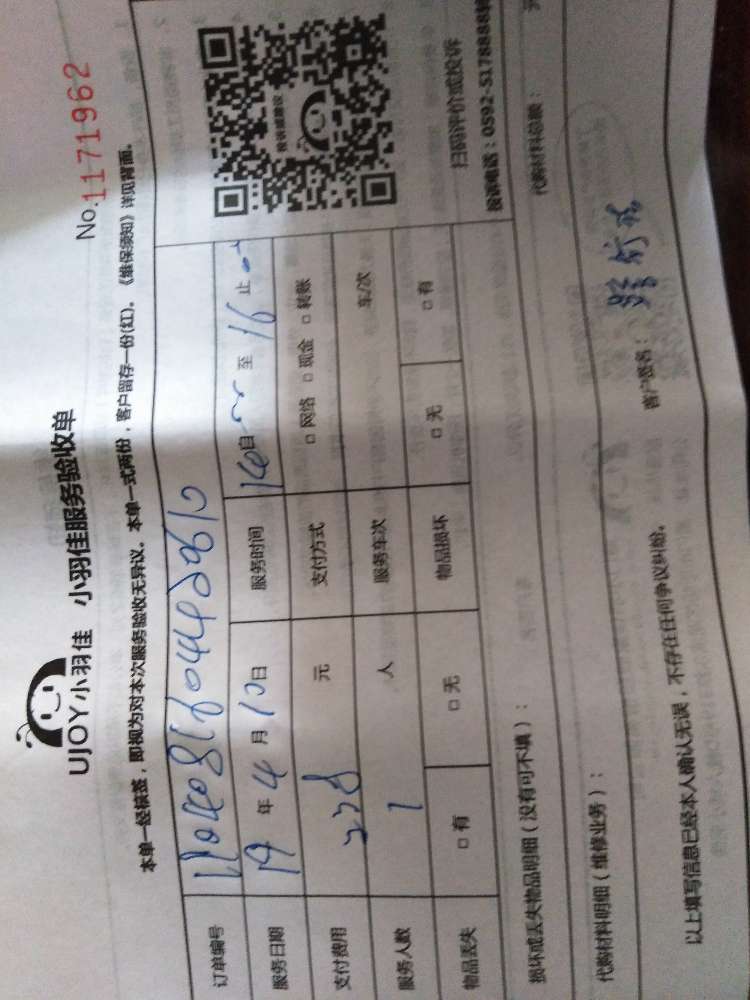 UJOY小羽佳 小羽佳服务验收单
No.1171962
本单一经核签，即视为对本次服务验收无异议。本单一式两份，客户留存一份(红)。《维保须知》详见背面。
订单编号
服务日期 19 年 4 月 10 日 服务时间 自 至 16 止
支付费用 228 元 支付方式 □ 网络 □ 现金 □ 转账
服务人数 1 人 服务车次 车/次
物品丢失 □ 有 □ 无 物品损坏 □ 无 □ 有
投诉或建议
扫码评价或投诉
投诉电话：0592-5178888转
损坏或丢失物品明细（没有可不填）：
代购材料明细（维修业务）： 代购材料总额： 元
以上填写信息已经本人确认无误，不存在任何争议纠纷。
客户签名：